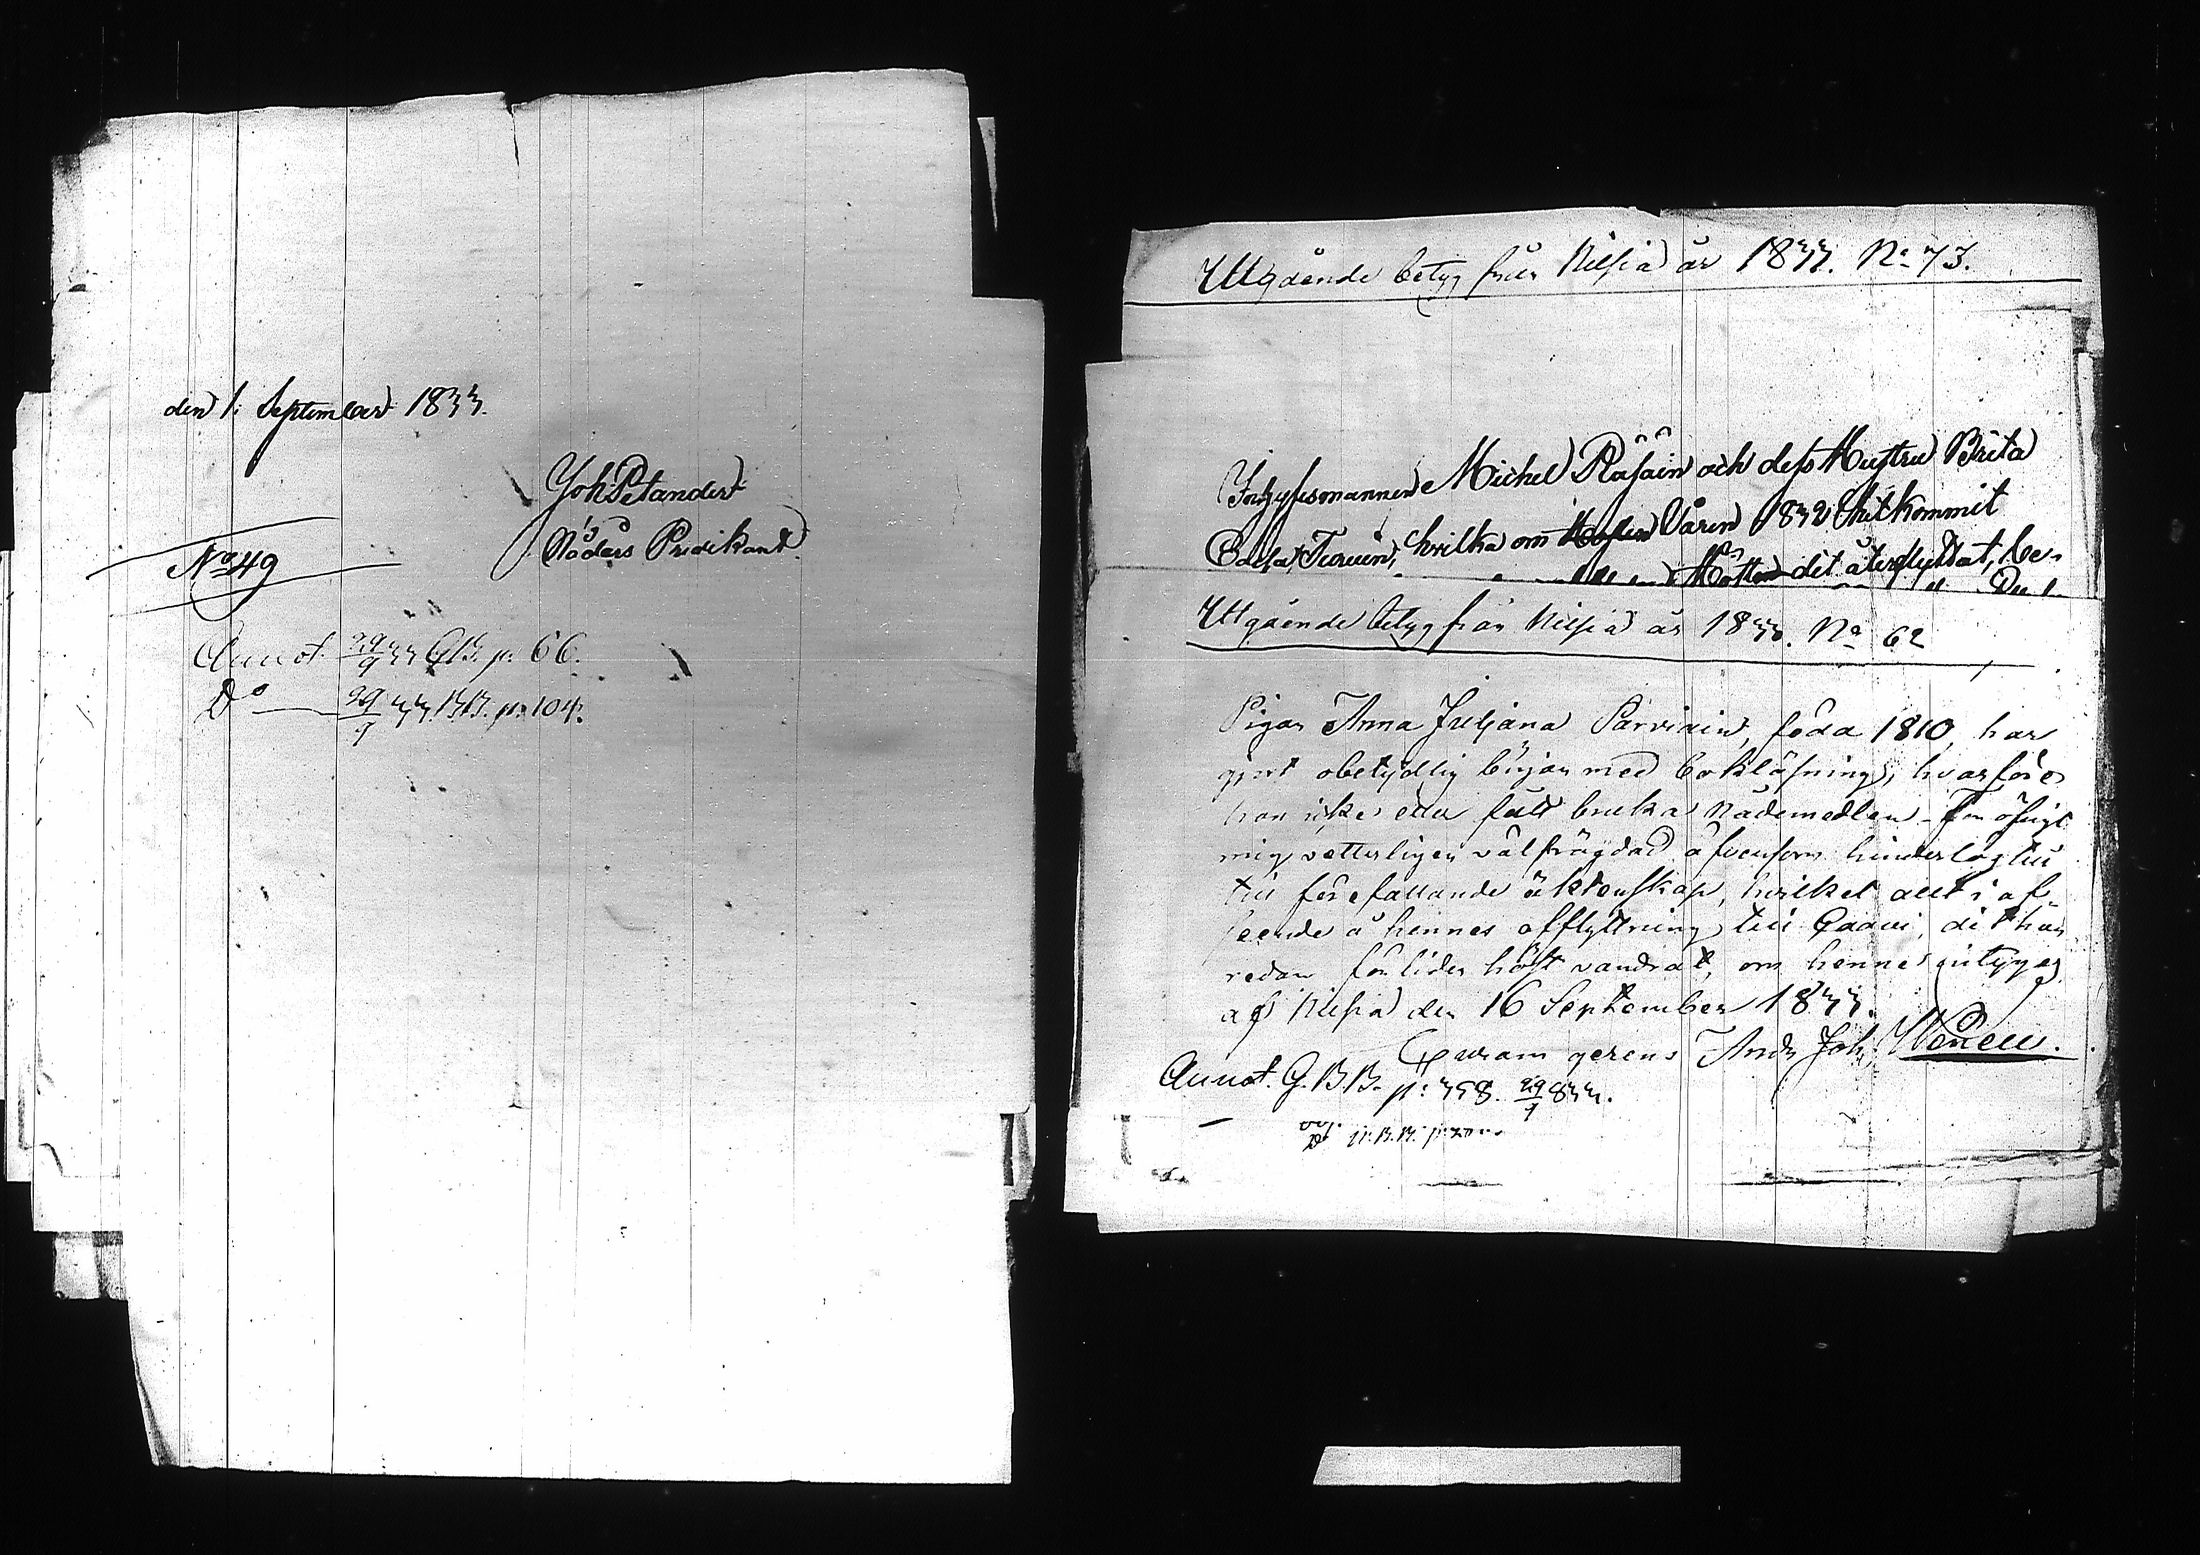 den 1. September 1833.
Joh Petander
Nöders Predikant.
No 49
Annot. 29/9 33 GB. p. 66.
Do 29/9 33. BB. p. 104.
Utgående betyg från Nilsiä år 1833. No 73.
Inhysesmannen Michel Räsäin och dess Hustru Brita
hvilka om Våren 1832 hitkommit
dit återflyttat, be-
Utgående betyg från Nilsiä år 1833. No 62
Pigan Anna Juliana Parviain, föda 1810, har
gjort obetydlig början med bokläsning, hvarföre
hon icke eller fått bruka nådemedlen - För öfrigt
mig vetterligen välfrägdad äfvensom hinderlös till
till förefallande äktenskap, hvilket allt i af-
seende å hennes afflyttning till Gaavi, dit hon
redan förliden höst vandrat, om henne intygas
af Nilsiä den 16 September 1833.
Curam gerens And. Joh.
Annot. G.B.B. p: 358. 29/9 833.